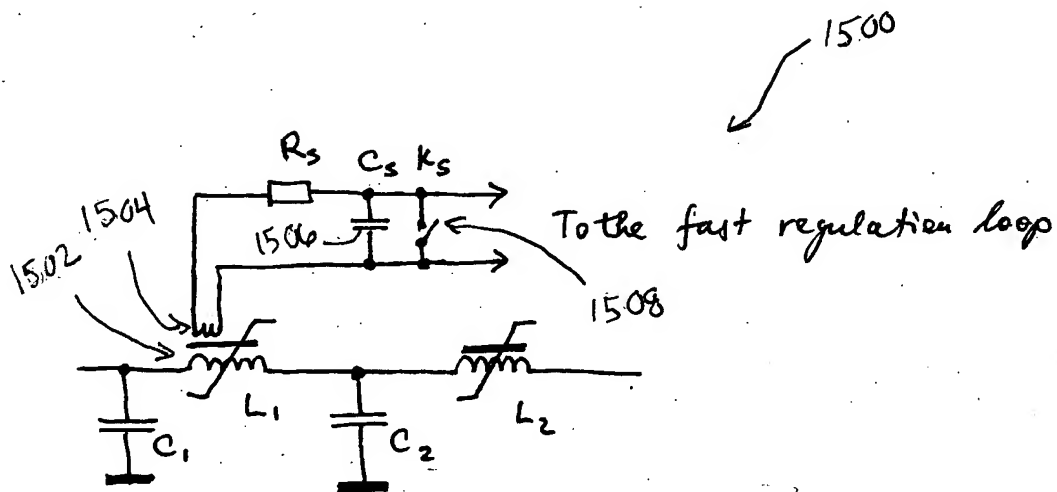 1500
Rs Cs Ks
1504
1506
To the fast regulation loop
1502
1508
L1
L2
C1
C2